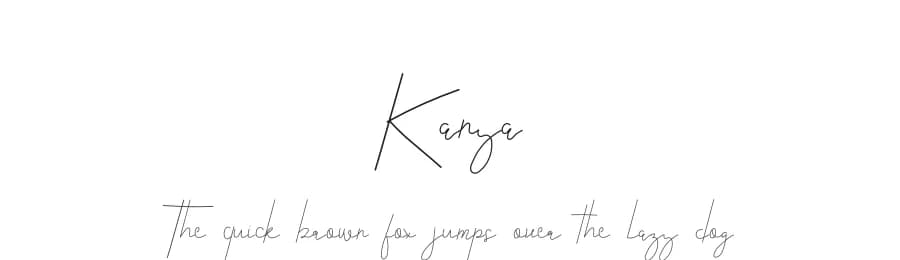 Kanya
The quick brown fox jumps over the lazy dog